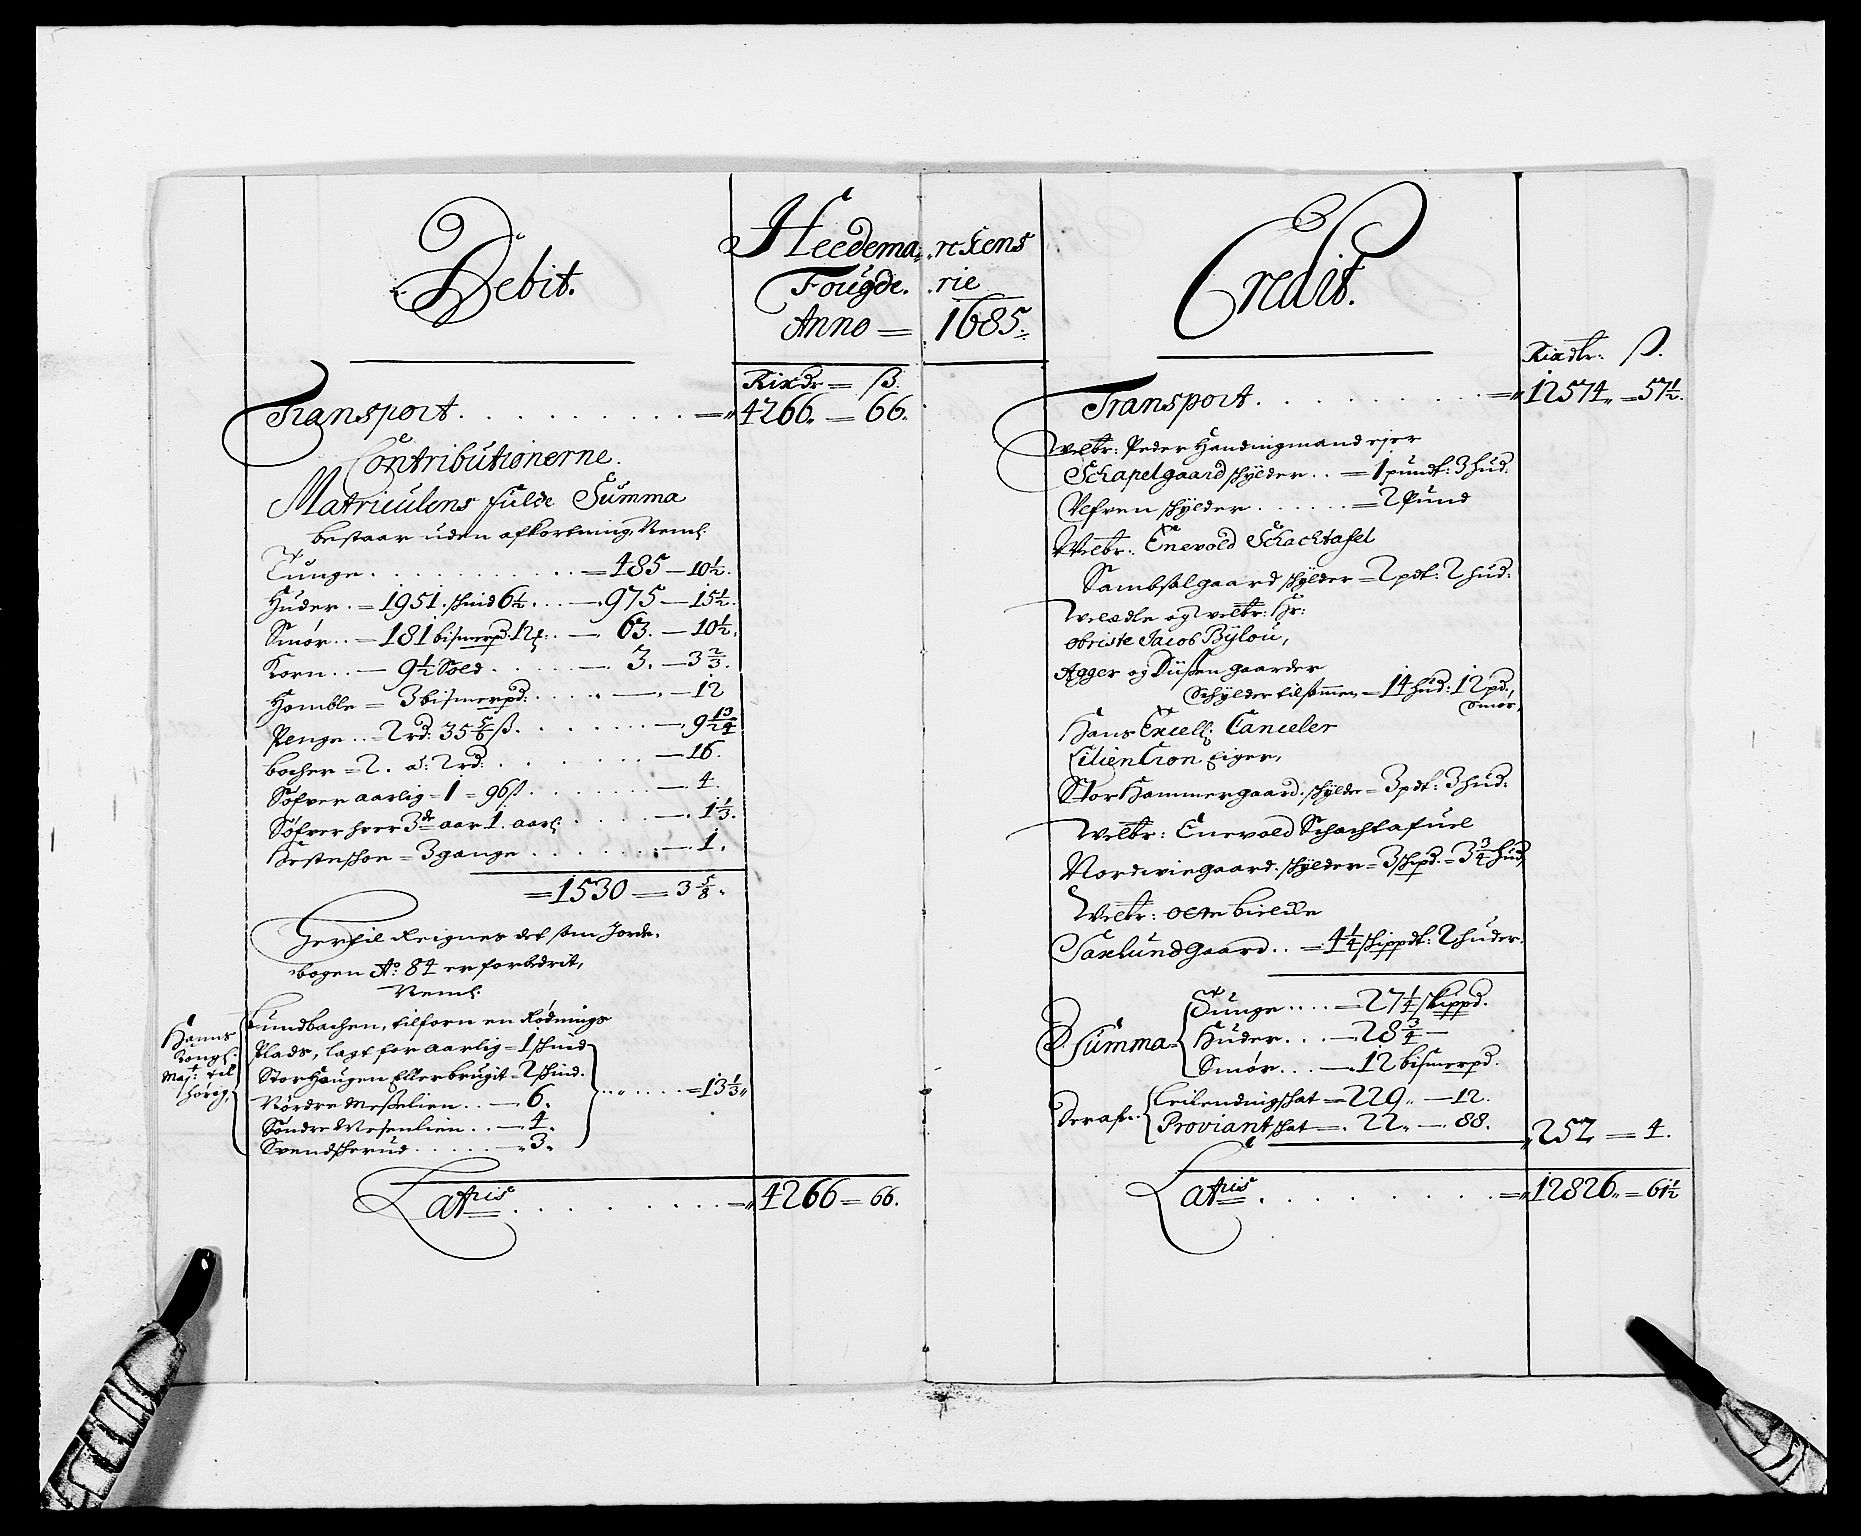 Debit.
Heedemarckens
Fougderie
Anno = 1685.
Rixdr = ß.
Transport . . . . . . . . . . =" 4266. = 66.
Contributionerne.
Matriculens fulde Summa
bestaar uden afkortning, Neml:
Tunge . . . . . . . . . = 485 — 10½.
Huder . = 1951. skind 6½ . . . —. 975 — 15½.
Smør . . — 181 bismerpd: 12 . . — 63. — 10½.
Korn . . — 9½ Sold . . . . . —. 3. — 3⅔.
Homble = 3 bismerpd: . . . . . —. — 12
Penge . . = 2 rd: 35⅚ ß . . . . . . . —. 9 13/24
bocher = 2. a: 2 rd: . . . . . . . — 16.
Søfver aarlig = 1 = 96 ß . . . . . . — 4.
Søfver hver 3de aar 1. aarl: . . . —. 1⅓.
Hesteskoe = 3 gange . . . . . . —. 1.
= 1530 — 3⅝.
Hertil Reignes det som Jorde-
bogen Ao: 84 er forbedrit,
Neml:
Hanns
Kongl:
Maj:t til
hørig,
Lundbachen, tilforn en Rødnings
Plads, lagt for aarlig = 1 skind
Stor Haugen Ellerbrugit = 2 skind.
Nørdre Messelien . . —. 6.
Søndre Mesenlien . . —. 4.
Svendskerud . . . . . —. 3.
. . . . . . = 13⅓"
Latris . . . . . . . . . =" 4266 = 66.
Credit.
Rixdlr: ß.
Transport . . . . . . . . . =" 12574" = 57½.
Welbr: Peder Handnigmand ejer
Schapelgaard skylder . . = 1 pundt: 3 hud:
Alfren skylder . . . . . . = 2 Pund
Welbr: Enevold Schachtafel
Sambsalgaard skylder = 2 pdt: 2 hud:
Weledle og Velbr: Hr:
obriste Jacob Bÿlou,
Agger og Dussen gaarder
Schylder tilsammen = 14 hud: 12 pd,
Smør,
Hans Excell: Canceler
Lilien Cron Eiger,
Stor Hammergaard. skylder = 3 pdt: 3 hud:
Welbr: Enevold Schachtafuel
Nordviegaard. skylder = 3 skipd: = 3¾ hud,
Welbr: Otte bielcke
Saxlund Gaard . . = 4¼ skippdt: 2 huder.
Summa =
Tunge . . . . = 27¼ skippd.
Huder . . . —. 28¾ —
Smør . . . —. 12 bismerpd.
Deraf . .
Leilendingskat = 229" — 12.
Proviantskat —. 22" —. 88.
" 252 = 4.
Latris . . . . . . . . . =" 12826" = 61½